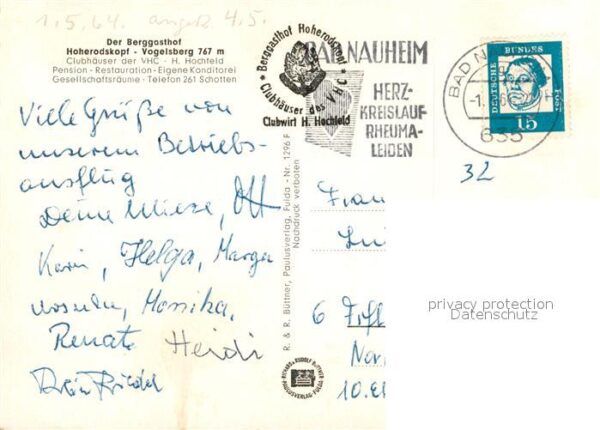 1.5.64. 4.5.
Der Berggasthof
Hoherodskopf - Vogelsberg 767 m
Clubhäuser der VHC - H. Hochfeld
Pension - Restauration - Eigene Konditorei
Gesellschaftsräume - Telefon 261 Schotten
Berggasthof Hoherodskopf
Clubhäuser des VHC
Clubwirt H. Hochfeld
BAD NAUHEIM
HERZ-
KREISLAUF-
RHEUMA-
LEIDEN
BAD N
635
DEUTSCHE BUNDESPOST
15
32
Viele Grüße von
unserem Betriebs-
ausflug
Deine Mieze, Ott
Karin, Helga, Marga
Monika,
Renate Heidi
R. & R. Büttner, Paulusverlag, Fulda - Nr. 1296 F
Nachdruck verboten
Frau
6
Nor
10.
privacy protection
Datenschutz